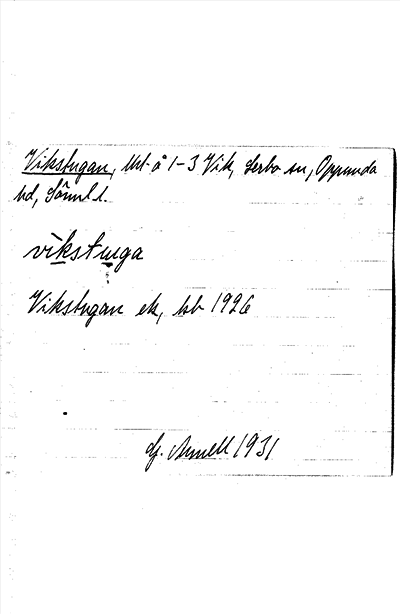 Vikstugan, Urt å 1-3 Vik, Lerbo sn, Oppunda
hd, Sörml l.
vikstuga
Vikstugan ek, hsb 1926
Gf. Arnell 1931